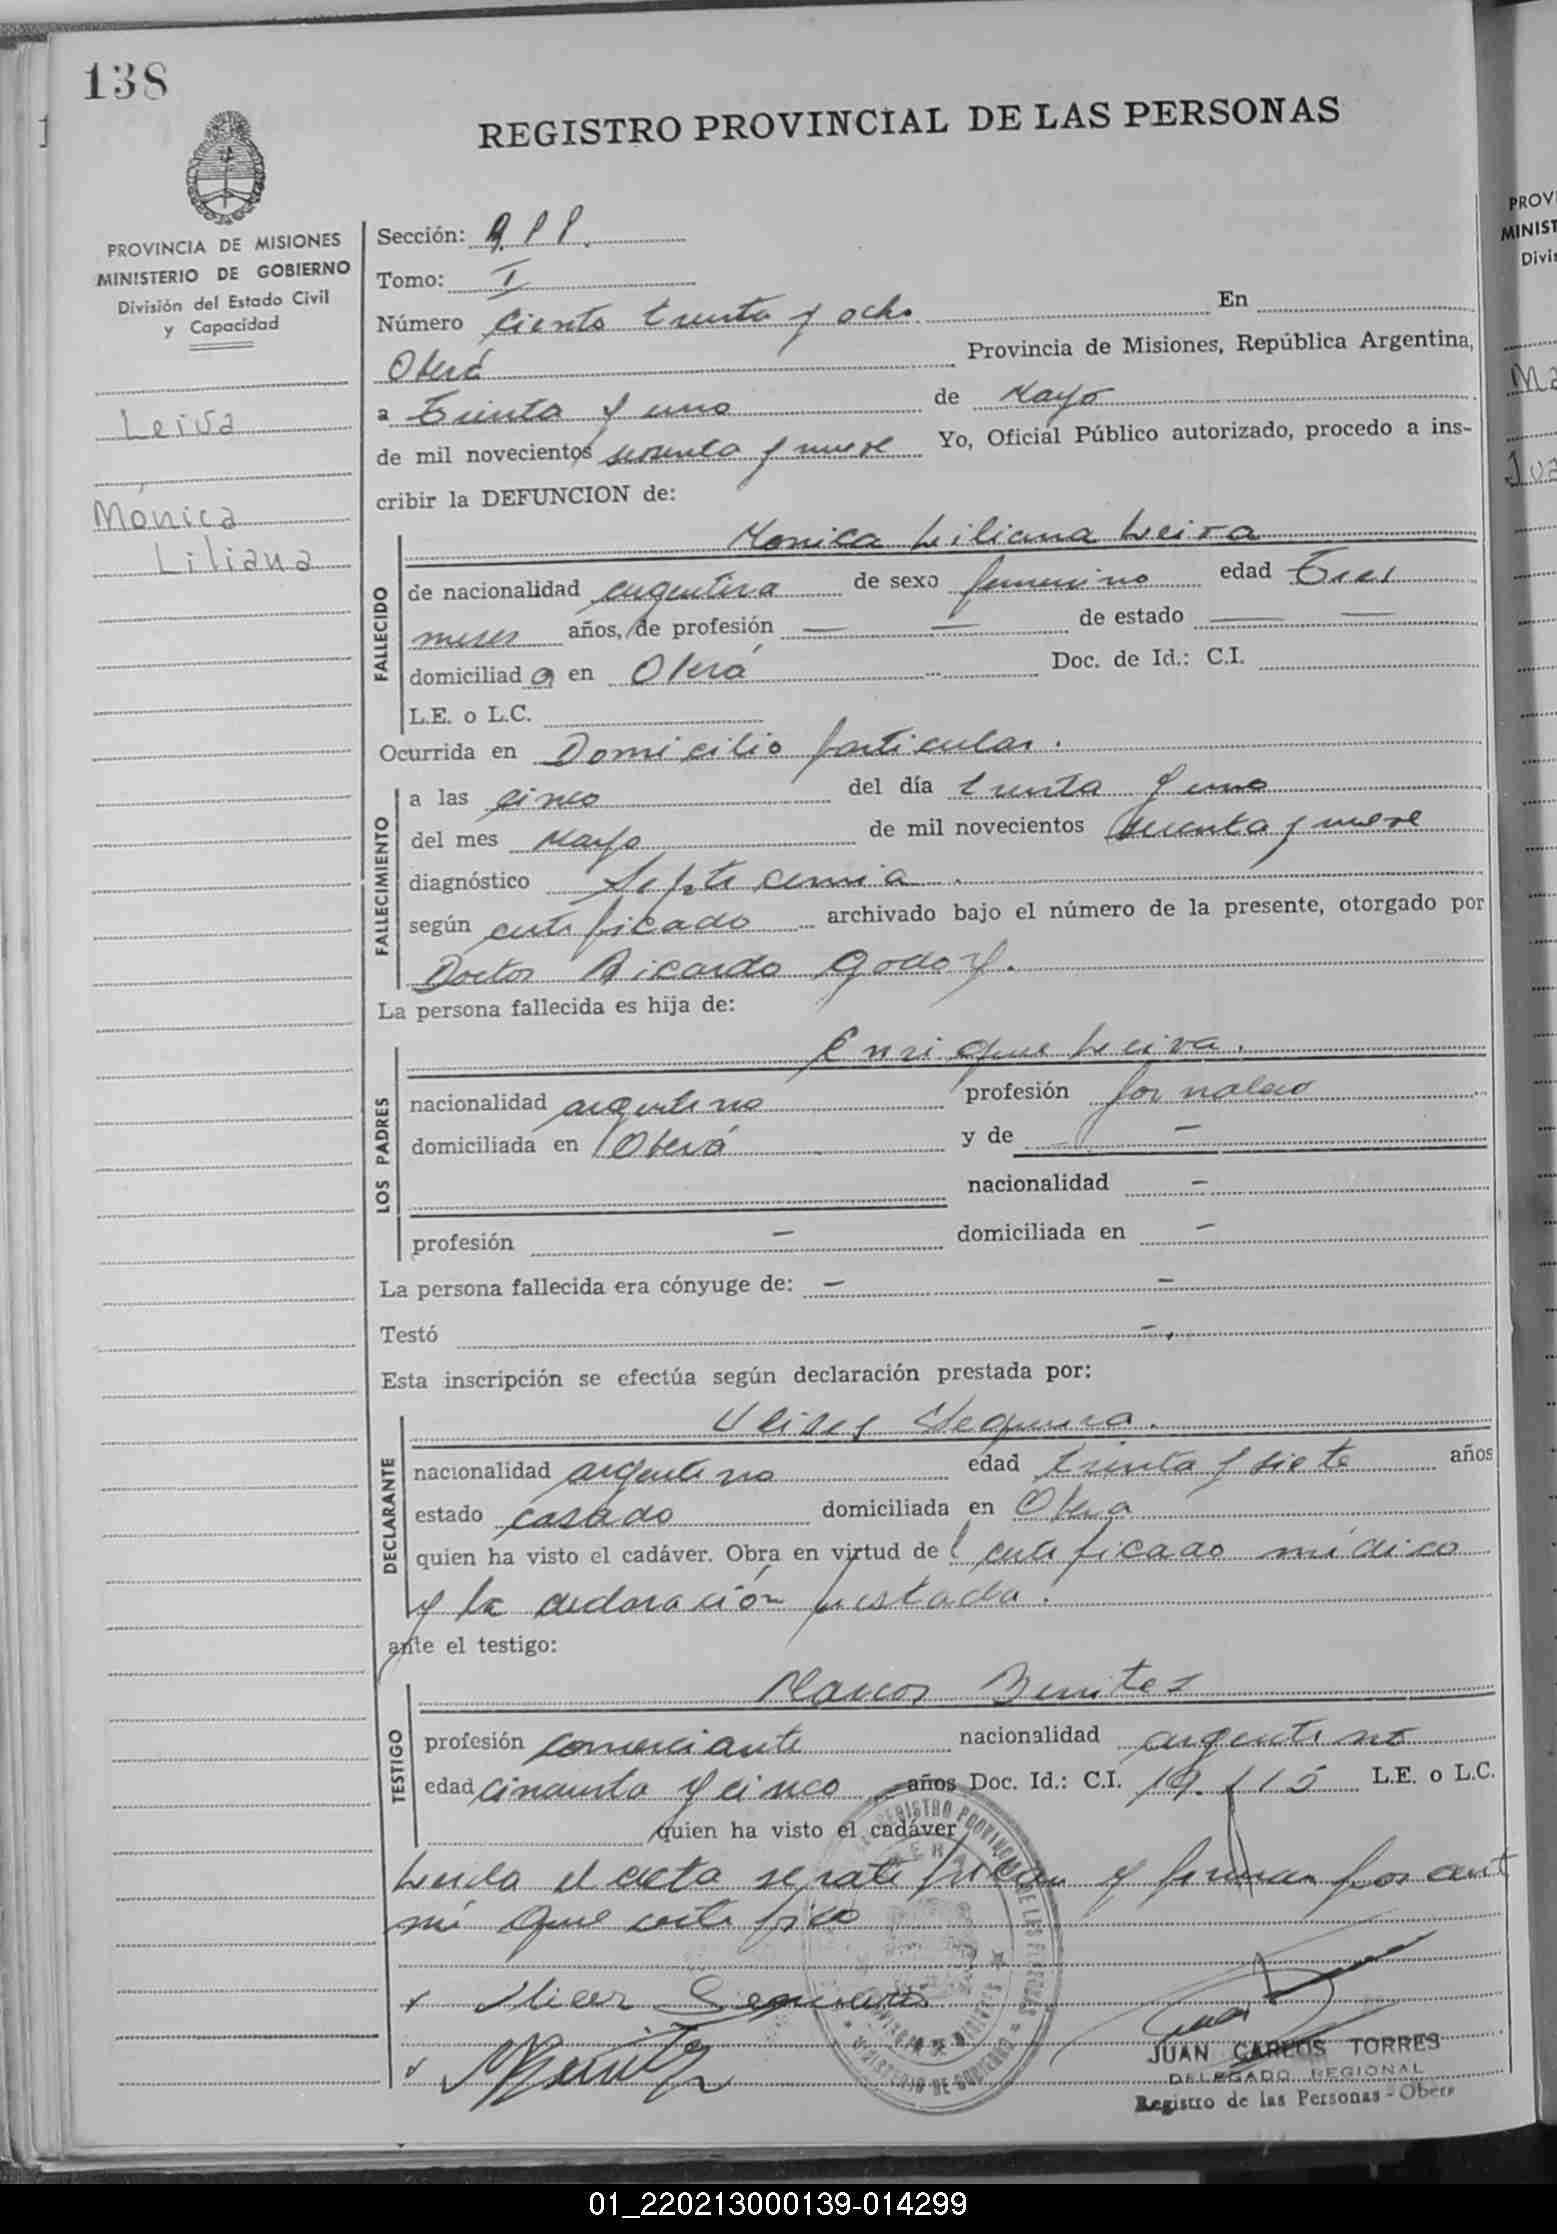 138
REGISTRO PROVINCIAL DE LAS PERSONAS
PROVINCIA DE MISIONES
MINISTERIO DE GOBIERNO
División del Estado Civil
y Capacidad
Leiva
Mónica
Liliana
Sección:
Tomo: I
Número Ciento treinta y ocho En
Oberá Provincia de Misiones, República Argentina,
a Treinta y uno de Mayo
de mil novecientos y nueve Yo, Oficial Público autorizado, procedo a ins-
cribir la DEFUNCION de:
Monica Liliana Leiva
FALLECIDO
de nacionalidad argentina de sexo femenino edad Tres
meses años, de profesión — — de estado — —
domiciliad a en Oberá Doc. de Id.: C.I.
L.E. o L.C.
Ocurrida en Domicilio particular.
FALLECIMIENTO
a las cinco del día treinta y uno
del mes Mayo de mil novecientos y nueve
diagnóstico Septicemia.
según certificado archivado bajo el número de la presente, otorgado por
Doctor Ricardo Godoy.
La persona fallecida es hija de:
LOS PADRES
Enrique Leiva.
nacionalidad argentino profesión jornalero
domiciliada en Oberá y de –
nacionalidad –
profesión – domiciliada en –
La persona fallecida era cónyuge de: – –
Testó –.
Esta inscripción se efectúa según declaración prestada por:
DECLARANTE
Ulises Sequeira.
nacionalidad argentino edad treinta y siete años
estado casado domiciliada en Obera
quien ha visto el cadáver. Obra en virtud de l certificado médico
y la declaración prestada.
ante el testigo:
TESTIGO
Marcos Benitez
profesión comerciante nacionalidad argentino
edad cincuenta y cinco años Doc. Id.: C.I. 19.115 L.E. o L.C.
quien ha visto el cadáver
Leida el acta se ratifican y firman por ant
mi que certifico
JUAN CARLOS TORRES
DELEGADO REGIONAL
Registro de las Personas - Oberá
REGISTRO PROVINCIAL DE LAS PERSONAS
PROVINCIA DE MISIONES
MINISTERIO DE GOBIERNO
PROVI
MINIST
Divis
Ma
01_220213000139-014299